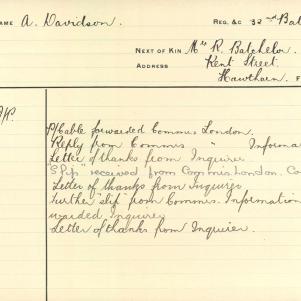 NAME A. Davidson. REG. &C 32nd Bat
NEXT OF KIN Mrs R. Batchelor.
ADDRESS Kent Street
Hawthorn F
P/Cable forwarded Commis London.
Reply from Commis " Informa
Letter of thanks from Inquirer
"Slip" received from Commis. London. Co
Letter of thanks from Inquirer
Further "slip" from Commis. Information
warded Inquirer
Letter of thanks from Inquirer.